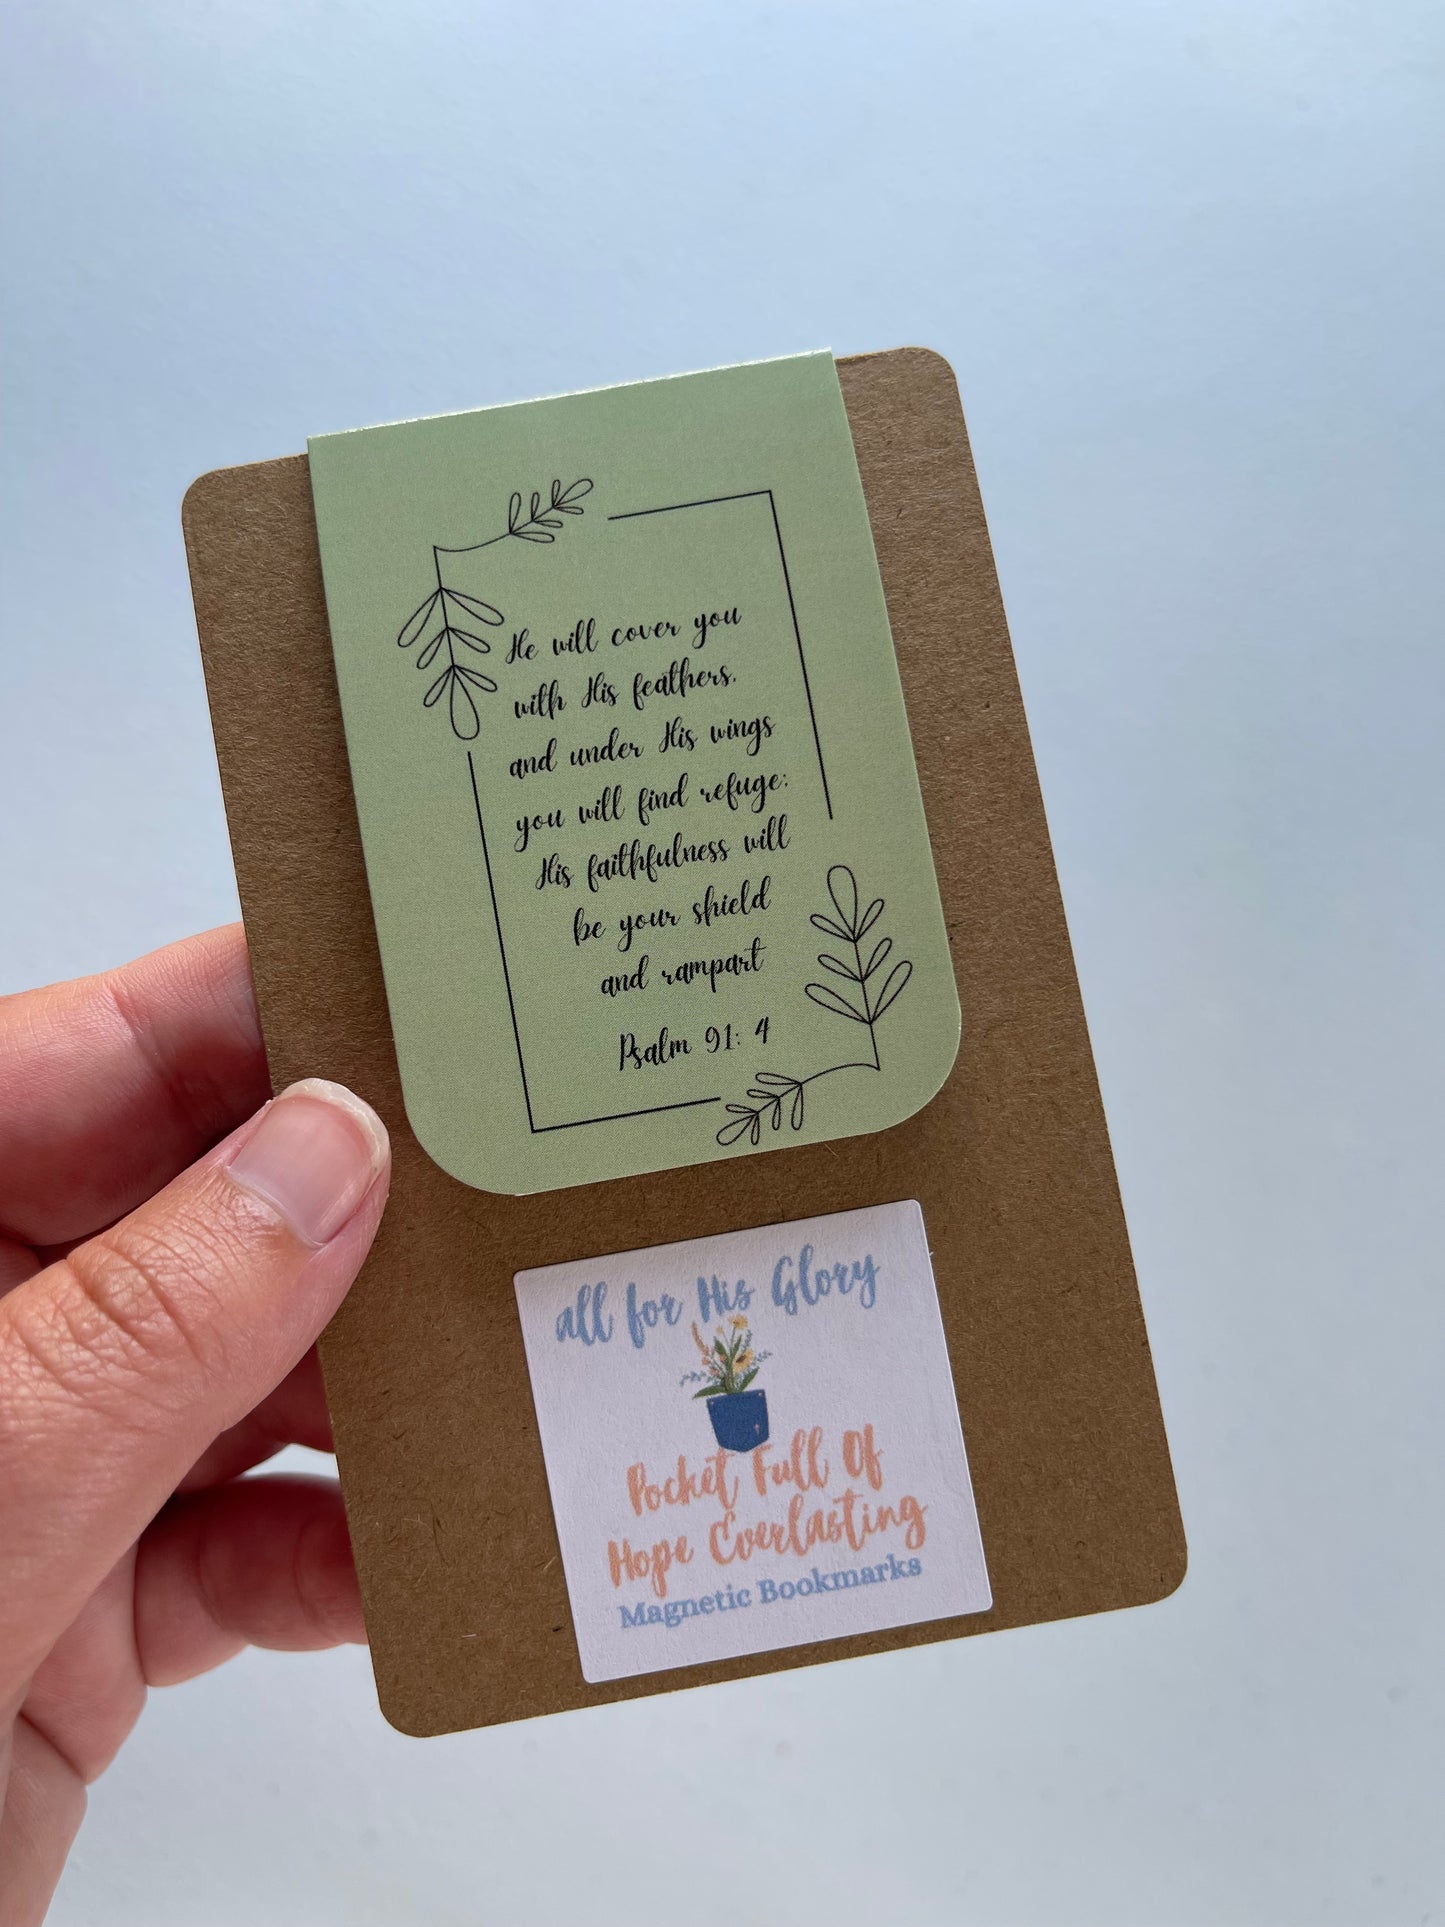 He will cover you
with His feathers,
and under His wings
you will find refuge;
His faithfulness will
be your shield
and rampart
Psalm 91: 4
all for His Glory
Pocket Full Of
Hope Everlasting
Magnetic Bookmarks